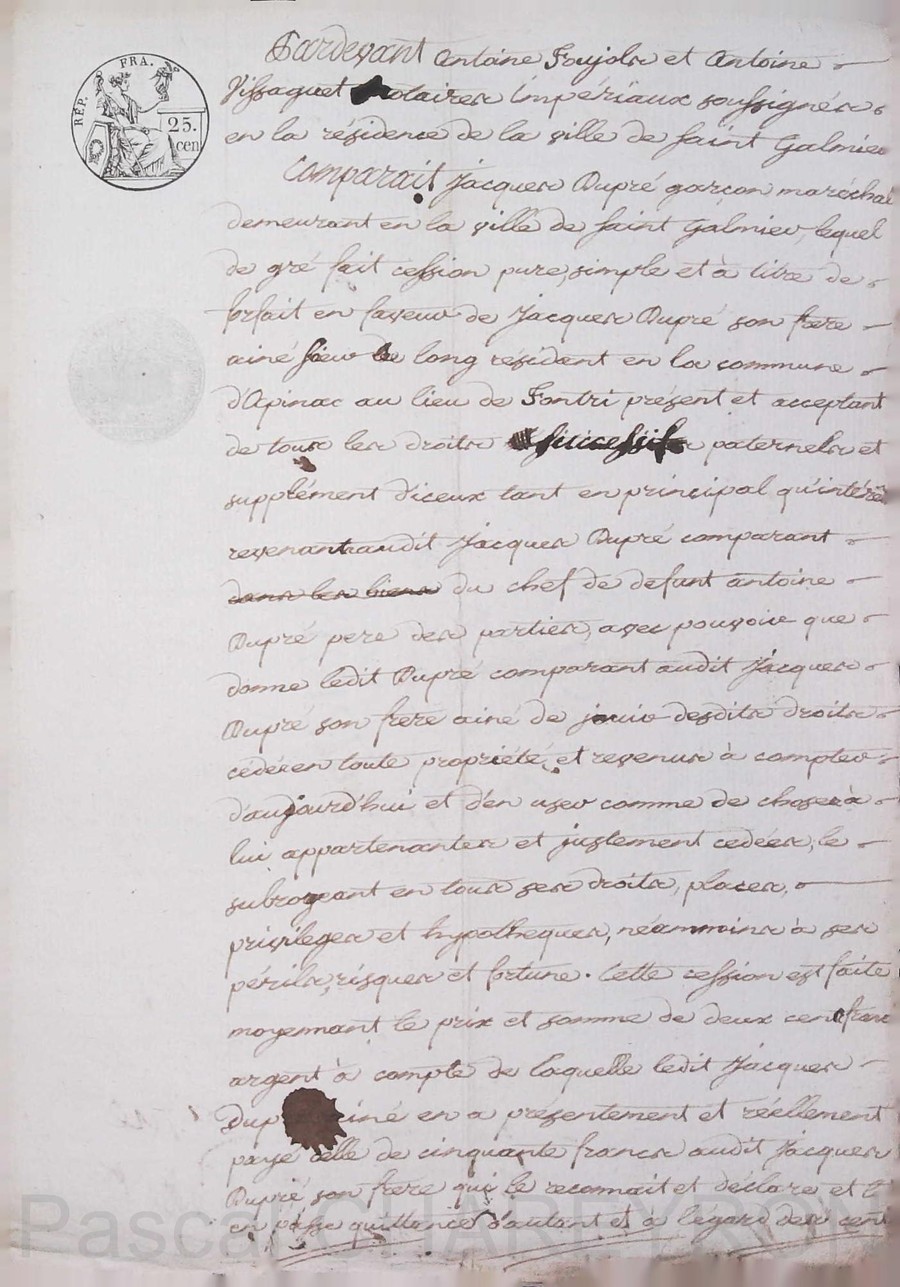 RÉP. FRA.
25.
cen
Pardevant Antoine Foujols et Antoine
Vissaguet notaires impériaux soussignés
en la résidence de la ville de saint Galmier
Comparait Jacques Dupré garçon maréchal
demeurant en la ville de saint Galmier, lequel
de gré fait cession pure, simple et à titre de
forfait en faveur de Jacques Dupré son frere
ainé long résidant en la commune
d'Apinac au lieu de Fontri présent et acceptant
de tous les droits successifs paternels et
supplément d'iceux tant en principal qu'intérêts
revenant audit Jacques Dupré comparant
dans les biens du chef de defunt antoine
Dupré pere des parties, avec pouvoir que
donne ledit Dupré comparant audit Jacques
Dupré son frere ainé de jouir desdits droits
cédés en toute propriété, et revenus à compter
d'aujourd'hui et d'en user comme de choses à
lui appartenantes et justement cedées, le
subrogeant en tous ses droits, places,
privileges et hypotheques, néammoins à ses
périls, risques et fortune. Cette cession est faite
moyennant le prix et somme de deux cent francs
argent à compte de laquelle ledit Jacques
Dup iné en a présentement et réellement
payé celle de cinquante francs audit Jacques
Dupré son frere qui le reconnait et déclare et l'
en passe quittance d'autant et à légard des cent
Pascal CHAREYRON